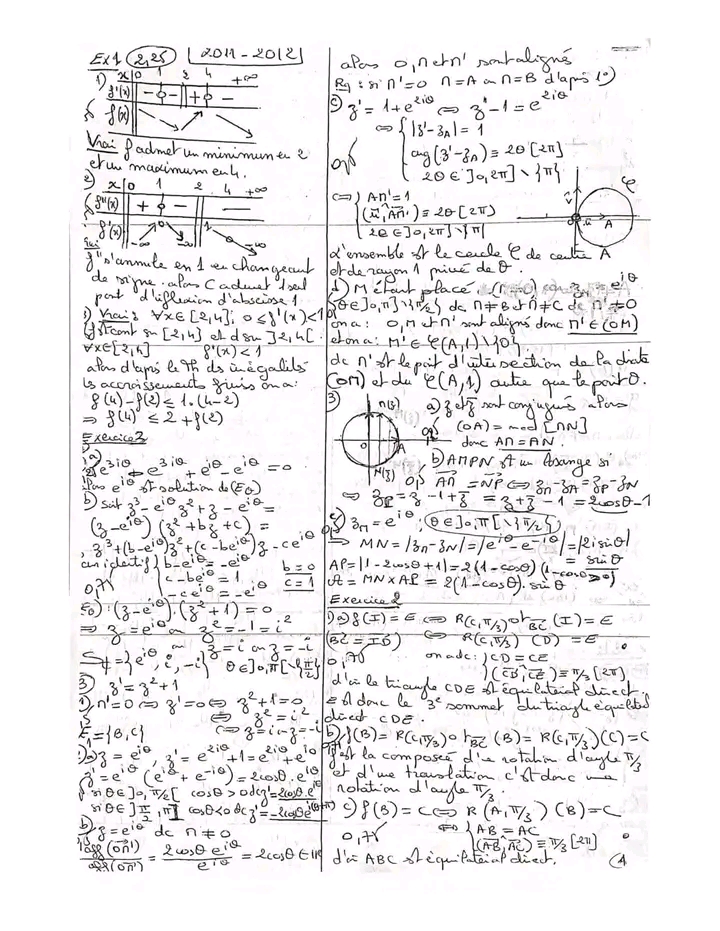 Ex1 2,25 2011-2012
1) x 0 1 2 4 +∞
f'(x) - 0 - || + 0 -
f(x)
Vrai f admet un minimum en 2
et un maximum en 4.
2) x 0 1 2 4 +∞
f''(x) + 0 - -
f'(x) -∞ 0 -∞ 1 0 -∞
f'' s'annule en 1 en changeant
de signe. alors C admet 1 seul
point d'inflexion d'abscisse 1
3) Vrai: ∀x∈[2,4]; 0≤f'(x)<1
f est cont sur [2,4] et d sur ]2,4[
∀x∈[2,4] f'(x)<1
alors d'après le Th des inégalités
des accroissements finis on a:
f(4)-f(2)≤1.(4-2)
⇒ f(4)≤2+f(2)
Exercice 2
e^{3iθ} - e^{3iθ} + e^{iθ} - e^{iθ} = 0
alors e^{iθ} est solution de (E_θ)
b) soit z³-e^{iθ}z²+z-e^{iθ} =
(z-e^{iθ})(z²+bz+c) =
z³+(b-e^{iθ})z²+(c-be^{iθ})z-ce^{iθ}
b-e^{iθ}=-e^{iθ}
c-be^{iθ}=1 b=0
0,75 -ce^{iθ}=-e^{iθ} c=1
E_θ): (z-e^{iθ}).(z²+1)=0
⇒ z=e^{iθ} ou z²=-1=i²
z=i ou z=-i
S={e^{iθ}, i, -i} θ∈]0,π[\{π/2}
3) z'=z²+1
1) M'=O ⇔ z'=0 ⇔ z²+1=0
⇔ z²=i²
E₁={B,C} ⇔ z=i ou z=-i
z=e^{iθ}, z'=e^{2iθ}+1=e^{2iθ}+e^{i0}
z'=e^{iθ}(e^{iθ}+e^{-iθ})=2cosθ.e^{iθ}
si θ∈]0,π/2[ cosθ>0 dc z'=2cosθ.e^{iθ}
si θ∈]π/2,π[ cosθ<0 dc z'=-2cosθ e^{i(θ+π)}
b) z=e^{iθ} dc M≠O
aff(OM')/aff(OM) = 2cosθ e^{iθ}/e^{iθ} = 2cosθ∈IR
alors O, M et M' sont alignés
Rq: si M'=O M=A ou M=B d'après 1°)
c) z'=1+e^{2iθ} ⇔ z'-1=e^{2iθ}
⇔ |z'-z_A|=1
arg(z'-z_A)≡2θ[2π]
2θ∈]0,2π]\{π}
⇔ AM'=1
(u,AM')≡2θ[2π]
2θ∈]0,2π]\{π}
L'ensemble est le cercle C de centre A
et de rayon 1 privé de O.
d) M étant placé. z_M=e^{iθ}
θ∈]0,π]\{π/2} dc M≠B et M≠C dc M'≠O
on a: O, M et M' sont alignés donc M'∈(OM)
et on a: M'∈C(A,1)\{O}
dc M' est le point d'intersection de la droite
(OM) et du C(A,1) autre que le point O.
3) a) z et z̄ sont conjugués alors
(OA)=med[MN]
donc AM=AN.
b) AMPN est un losange si
AM=NP ⇔ z_M-z_A=z_P-z_N
⇒ z_P=z-1+z̄=z+z̄-1=2cosθ-1
c) z_M=e^{iθ}, θ∈]0,π[\{π/2}
⇒ MN=|z_M-z_N|=|e^{iθ}-e^{-iθ}|=|2i sinθ|
= sinθ
AP=|1-2cosθ+1|=2(1-cosθ) (1-cosθ≥0)
A=MN×AP=2(1-cosθ).sinθ
Exercice 2
1) a) f(I)=E ⇔ R(C,π/3) o t_BC (I)=E
(BC=ID) ⇔ R(C,π/3)(D)=E
0,75 on a dc: CD=CE
(CD,CE)≡π/3[2π]
d'où le triangle CDE est équilatéral direct.
E est donc le 3e sommet du triangle équilatéral
direct CDE.
b) f(B)=R(C,π/3) o t_BC (B)=R(C,π/3)(C)=C
f est la composée d'une rotation d'angle π/3
et d'une translation c'est donc une
rotation d'angle π/3.
c) f(B)=C ⇔ R(A,π/3)(B)=C
0,75 ⇔ AB=AC
(AB,AC)≡π/3[2π]
d'où ABC est équilatéral direct.